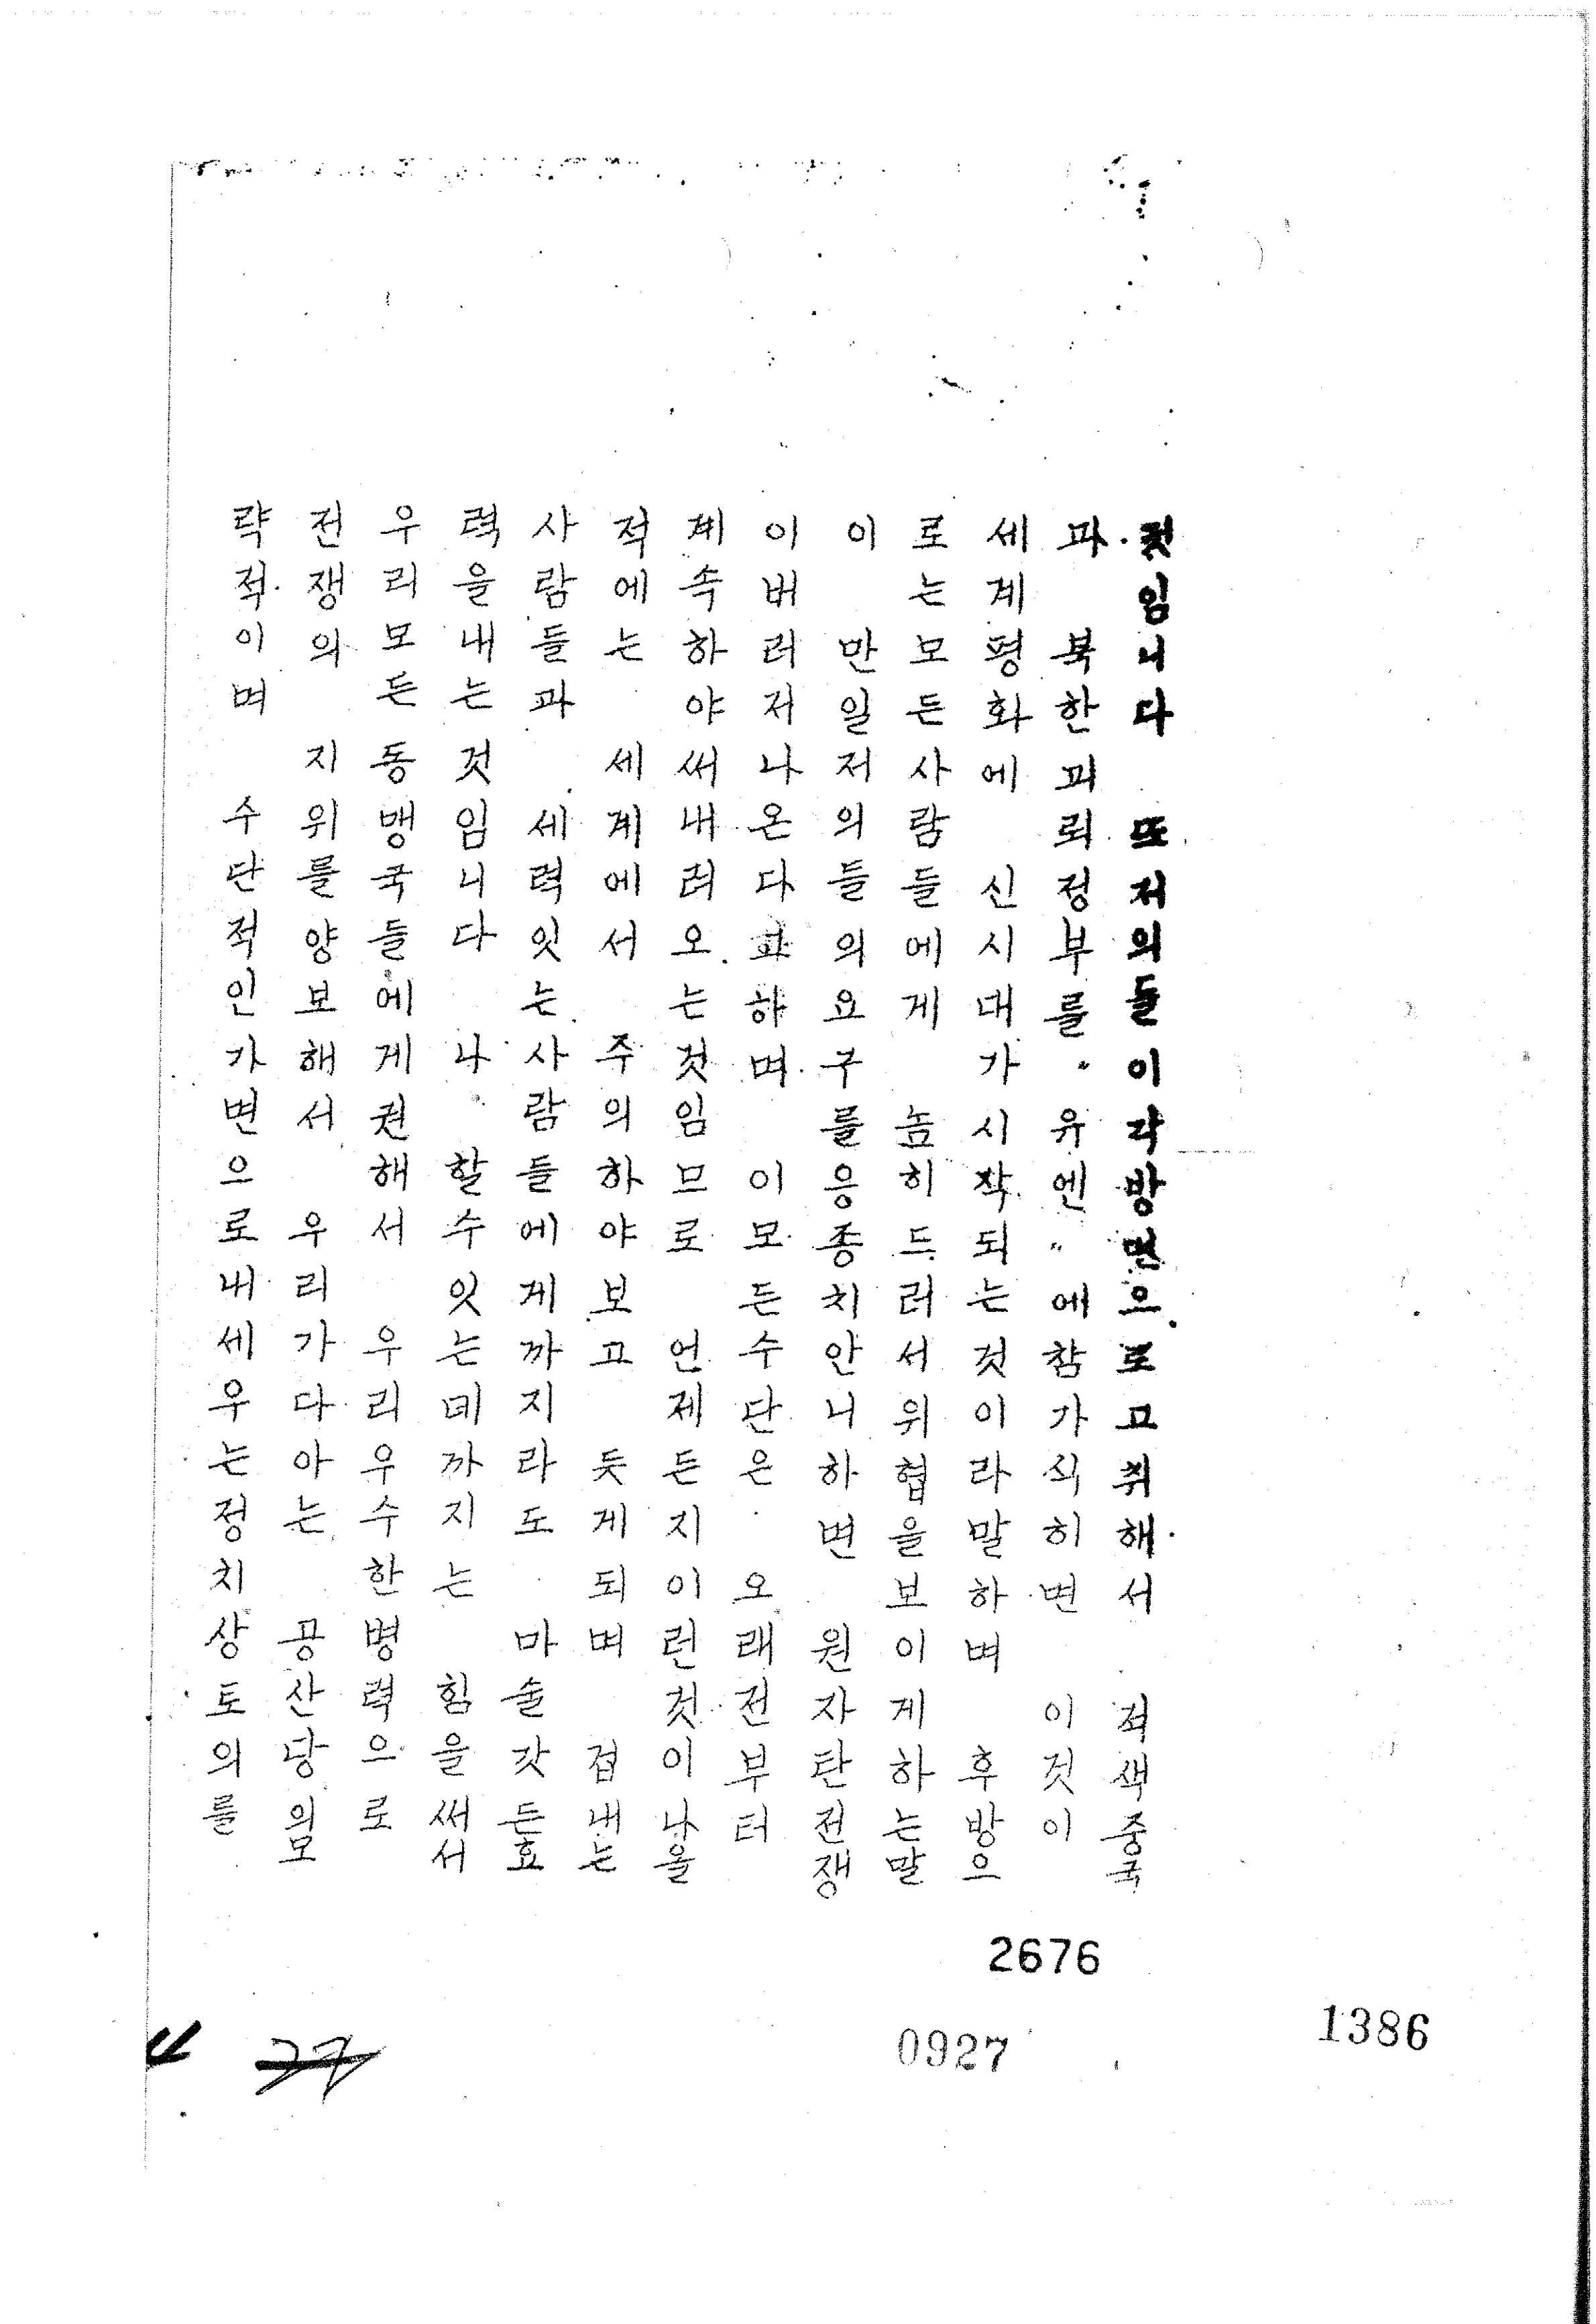 것임니다 또 저의들이 각 방면으로 고취해서 적색중국
과 북한괴뢰정부를 "유엔"에 참가식히면 이것이
세계평화에 신시대가 시작되는 것이라 말하며 후방으
로는 모든 사람들에게 놉히 드러서 위협을 보이게 하는 말
이 만일 저의들의 요구를 응종치 안니하면 원자탄 전쟁
이 버러저 나온다고 하며 이 모든 수단은 오래전부터
계속하야 써내려오는 것임므로 언제든지 이런 것이 나올
적에는 세계에서 주의하야 보고 듯게 되며 겁내는
사람들과 세력잇는 사람들에게까지라도 마술갓든 효
력을 내는 것임니다 나 할 수 잇는데까지는 힘을 써서
우리 모든 동맹국들에게 권해서 우리 우수한 병력으로
전쟁의 지위를 양보해서 우리가 다 아는 공산당의 모
략적이며 수단적인 가면으로 내세우는 정치상 토의를
2676
0927
1386